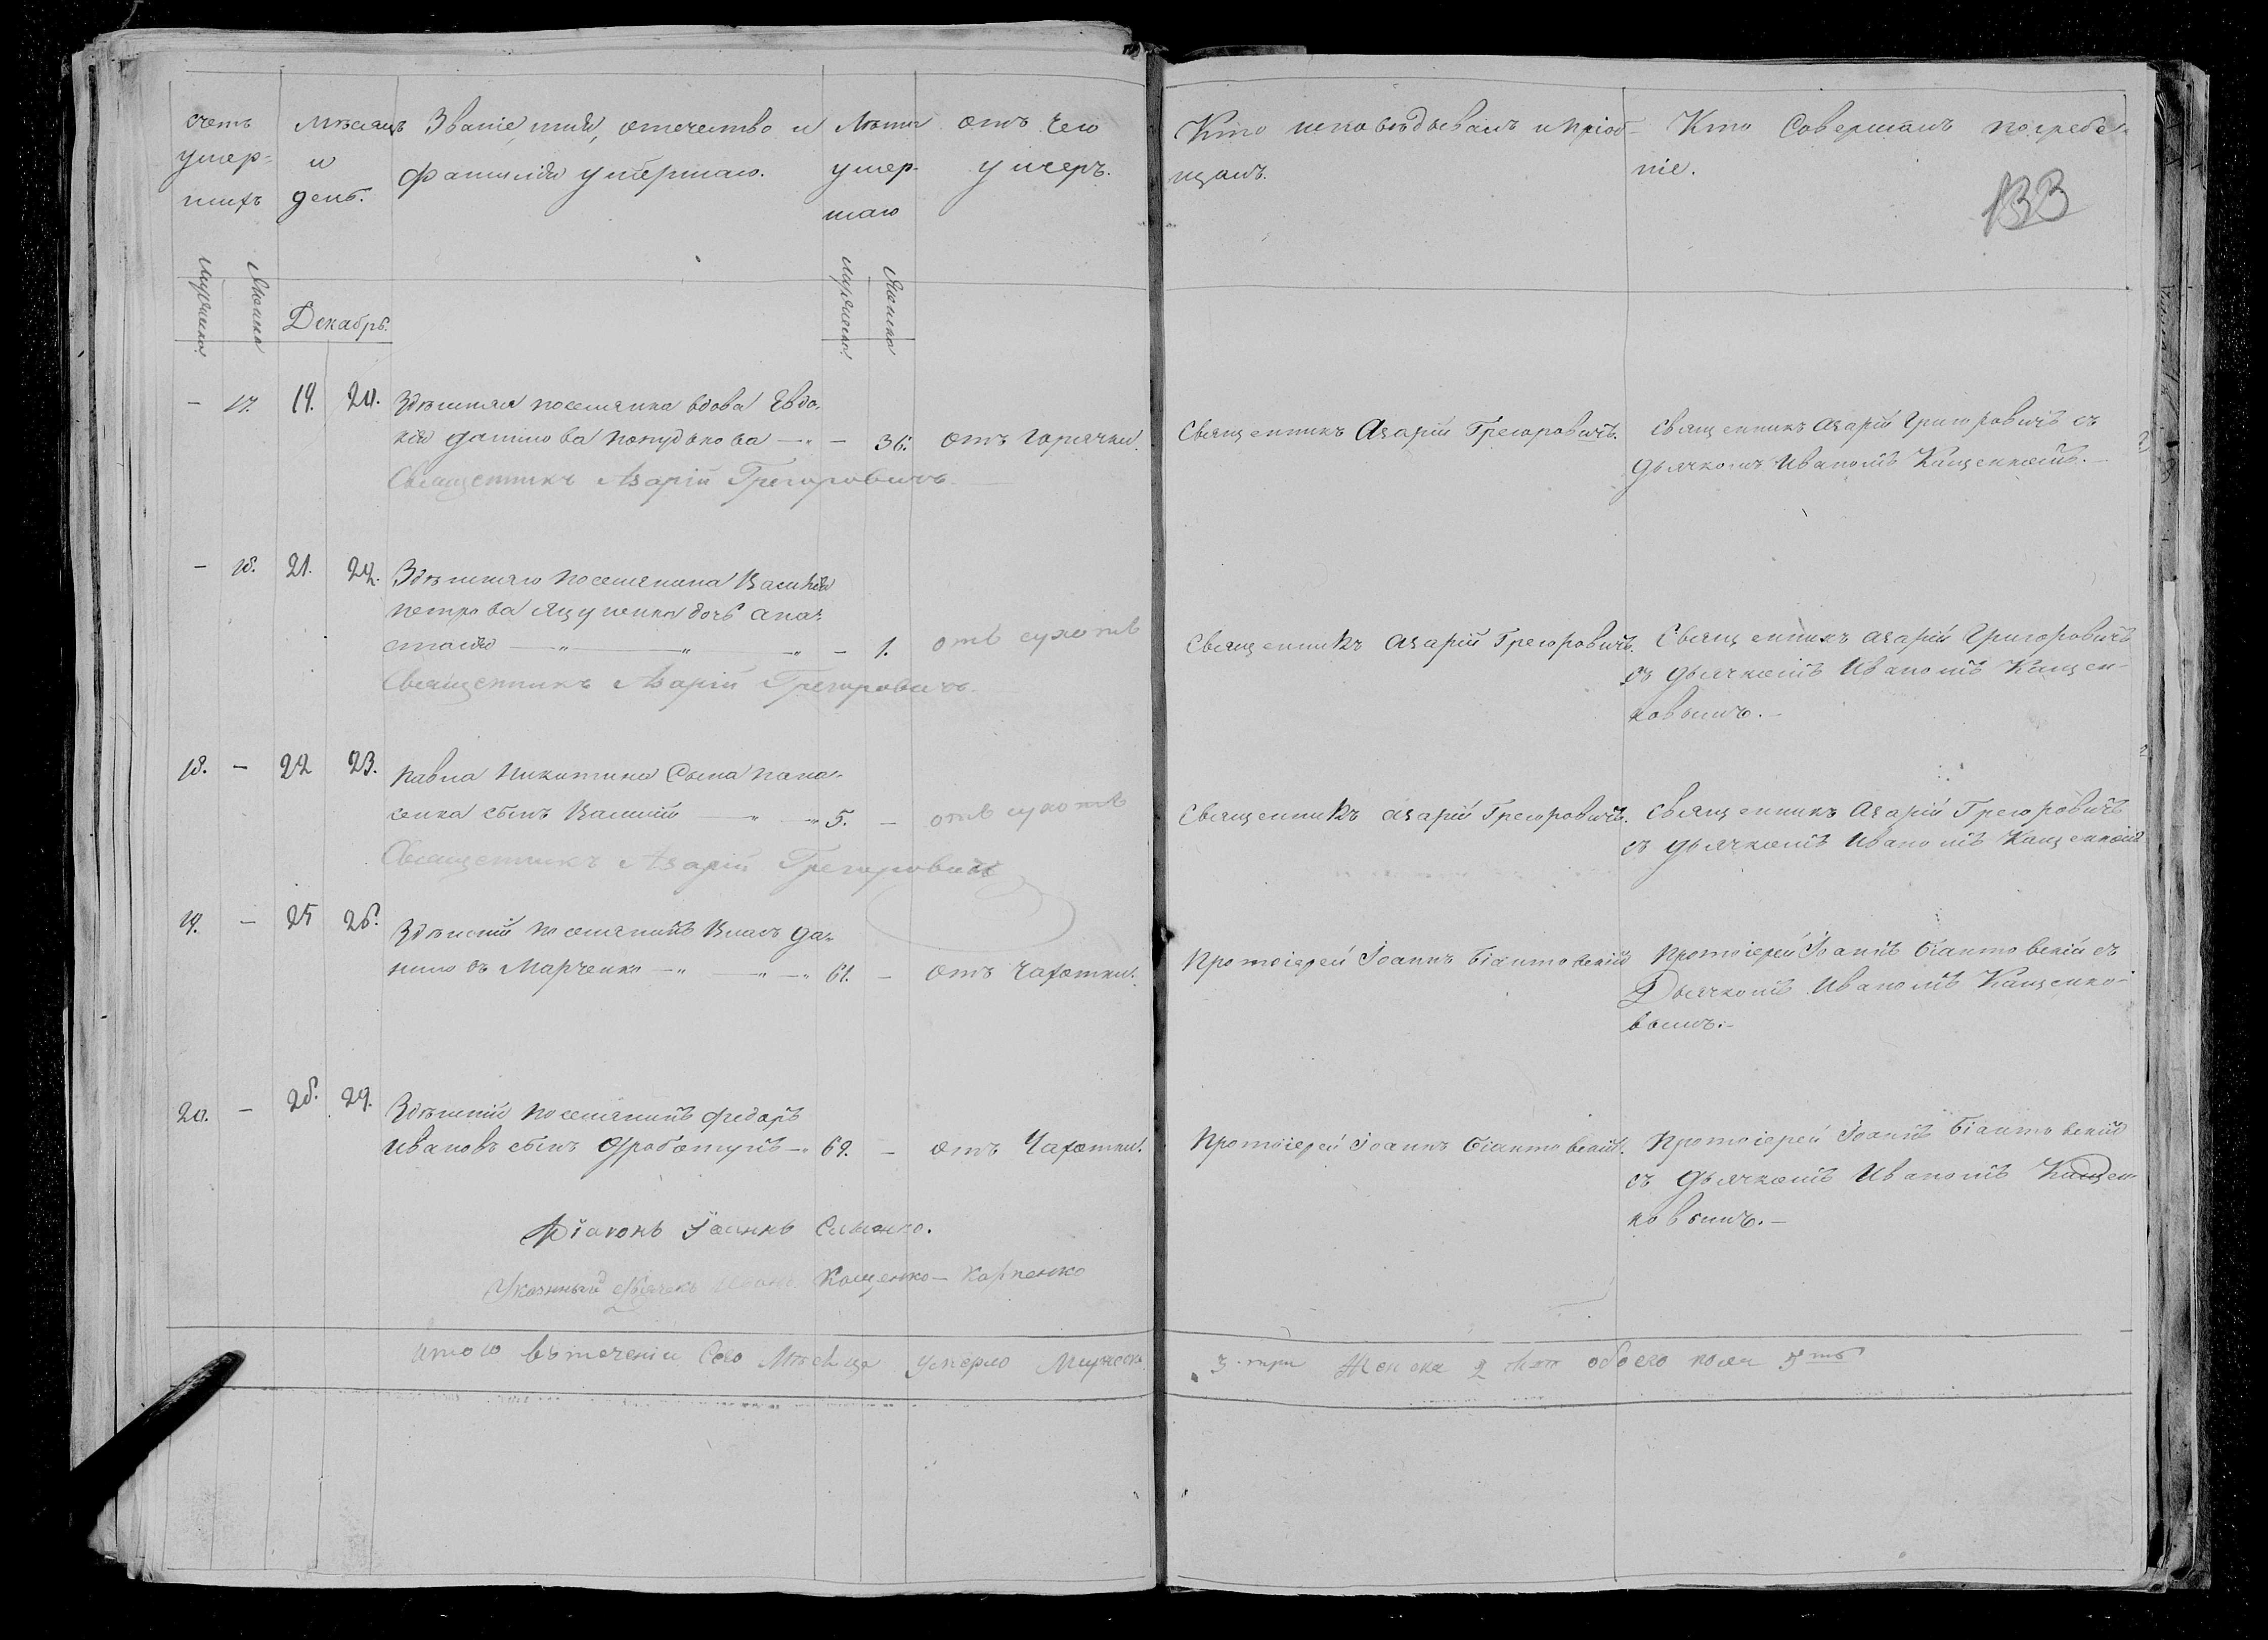 счетъ умер-шихъ
Мѣсяцъ и день.
Званіе, имя, отечество и фамилія умершаго.
Лѣта умер-шаго
отъ чего умеръ.
Кто исповѣдывалъ и пріоб-щалъ.
Кто Совершалъ погребе-ніе.
133
Мужеска.
Женска
Декабрь.
Мужеска.
Женска
- 17. 19. 20. Здѣшняя поселянка вдова Евдо-
кія данилова - 36. отъ горячки.
Священникъ Азарій Грегоровичъ.
Священникъ Азарій Грегоровичъ.
Священникъ Азарій Григоровичъ съ
дьячкомъ Иваномъ Кащенкомъ.
- 18. 21. 22. Здѣшняго поселянина Василія
петрова дочь Ана-
стасія - 1. отъ сухотъ
Священникъ Азарій Грегоровичъ.
Священникъ Азарій Грегоровичъ.
Священникъ Азарій Григоровичъ
съ дьячкомъ Иваномъ Кащен-
ковымъ.
18. - 22 23. Павла Никитина Сына пана-
сенка сынъ Василій 5. - отъ сухотъ
Священникъ Азарій Грегоровичъ
Священникъ Азарій Грегоровичъ.
Священникъ Азарій Грегоровичъ
съ дьячкомъ Иваномъ Кащенкомъ
19. - 25 26. Здѣшній поселянинъ Власъ Да-
ниловъ Марченко 61. - отъ Чахотки.
Протоіерей Іоаннъ Біантовскій
Протоіерей Іоаннъ Біантовскій съ
Дьячкомъ Иваномъ Кащенко-
вымъ.
20. - 28. 29. Здѣшній поселянинъ Федоръ
Ивановъ сынъ 69. - отъ Чахотки.
Протоіерей Іоаннъ Біантовскій.
Протоіерей Іоаннъ Біантовскій
съ дьячкомъ Иваномъ Кащен-
ковымъ.
Діаконъ Іоаннъ
Указный Дьячекъ Иванъ Кащенко-Карпенко
Итого въ теченіи Сего Мѣсяца умерло Мужеска 3. три Женска 2 обоего пола 5ть